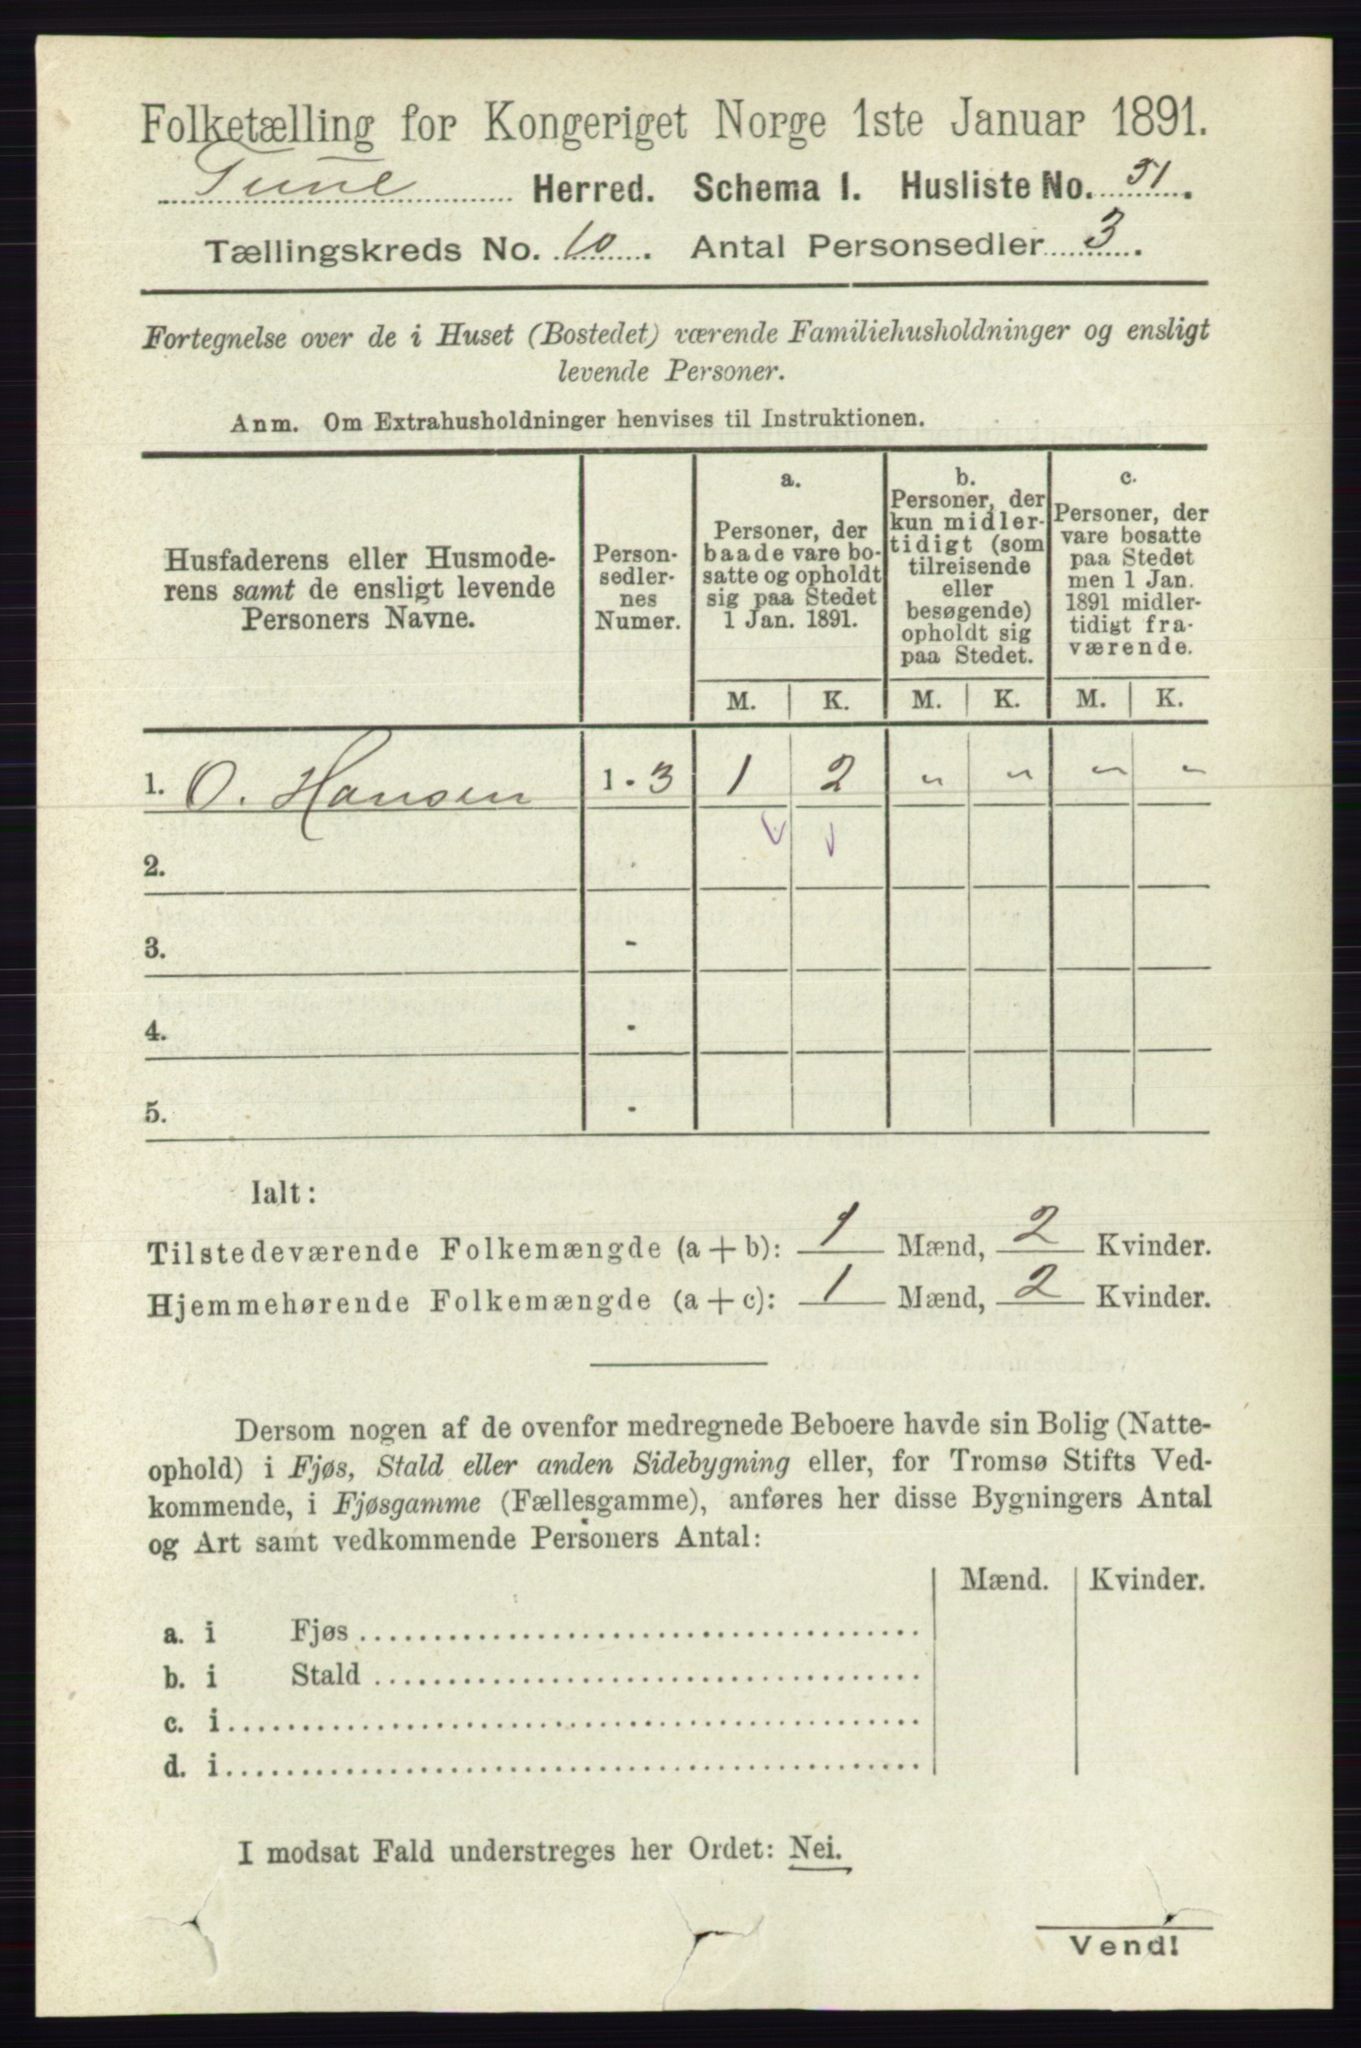 Folketælling for Kongeriget Norge 1ste Januar 1891.
Tune Herred. Schema I. Husliste No. 31.
Tællingskreds No. 10. Antal Personsedler 3.
Fortegnelse over de i Huset (Bostedet) værende Familiehusholdninger og ensligt
levende Personer.
Anm. Om Extrahusholdninger henvises til Instruktionen.
Husfaderens eller Husmode-
rens samt de ensligt levende
Personers Navne.
Person-
sedler-
nes
Numer.
a.
Personer, der
baade vare bo-
satte og opholdt
sig paa Stedet
1 Jan. 1891.
b.
Personer, der
kun midler-
tidigt (som
tilreisende
eller
besøgende)
opholdt sig
paa Stedet.
c.
Personer, der
vare bosatte
paa Stedet
men 1 Jan.
1891 midler-
tidigt fra-
værende.
M. K. M. K. M. K.
1. O. Hansen 1 - 3 1 2 " " " "
2. -
3. -
4. -
5. -
Ialt:
Tilstedeværende Folkemængde (a + b): 1 Mænd, 2 Kvinder.
Hjemmehørende Folkemængde (a + c): 1 Mænd, 2 Kvinder.
Dersom nogen af de ovenfor medregnede Beboere havde sin Bolig (Natte-
ophold) i Fjøs, Stald eller anden Sidebygning eller, for Tromsø Stifts Ved-
kommende, i Fjøsgamme (Fællesgamme), anføres her disse Bygningers Antal
og Art samt vedkommende Personers Antal:
Mænd. Kvinder.
a. i Fjøs
b. i Stald
c. i
d. i
I modsat Fald understreges her Ordet: Nei.
Vend!